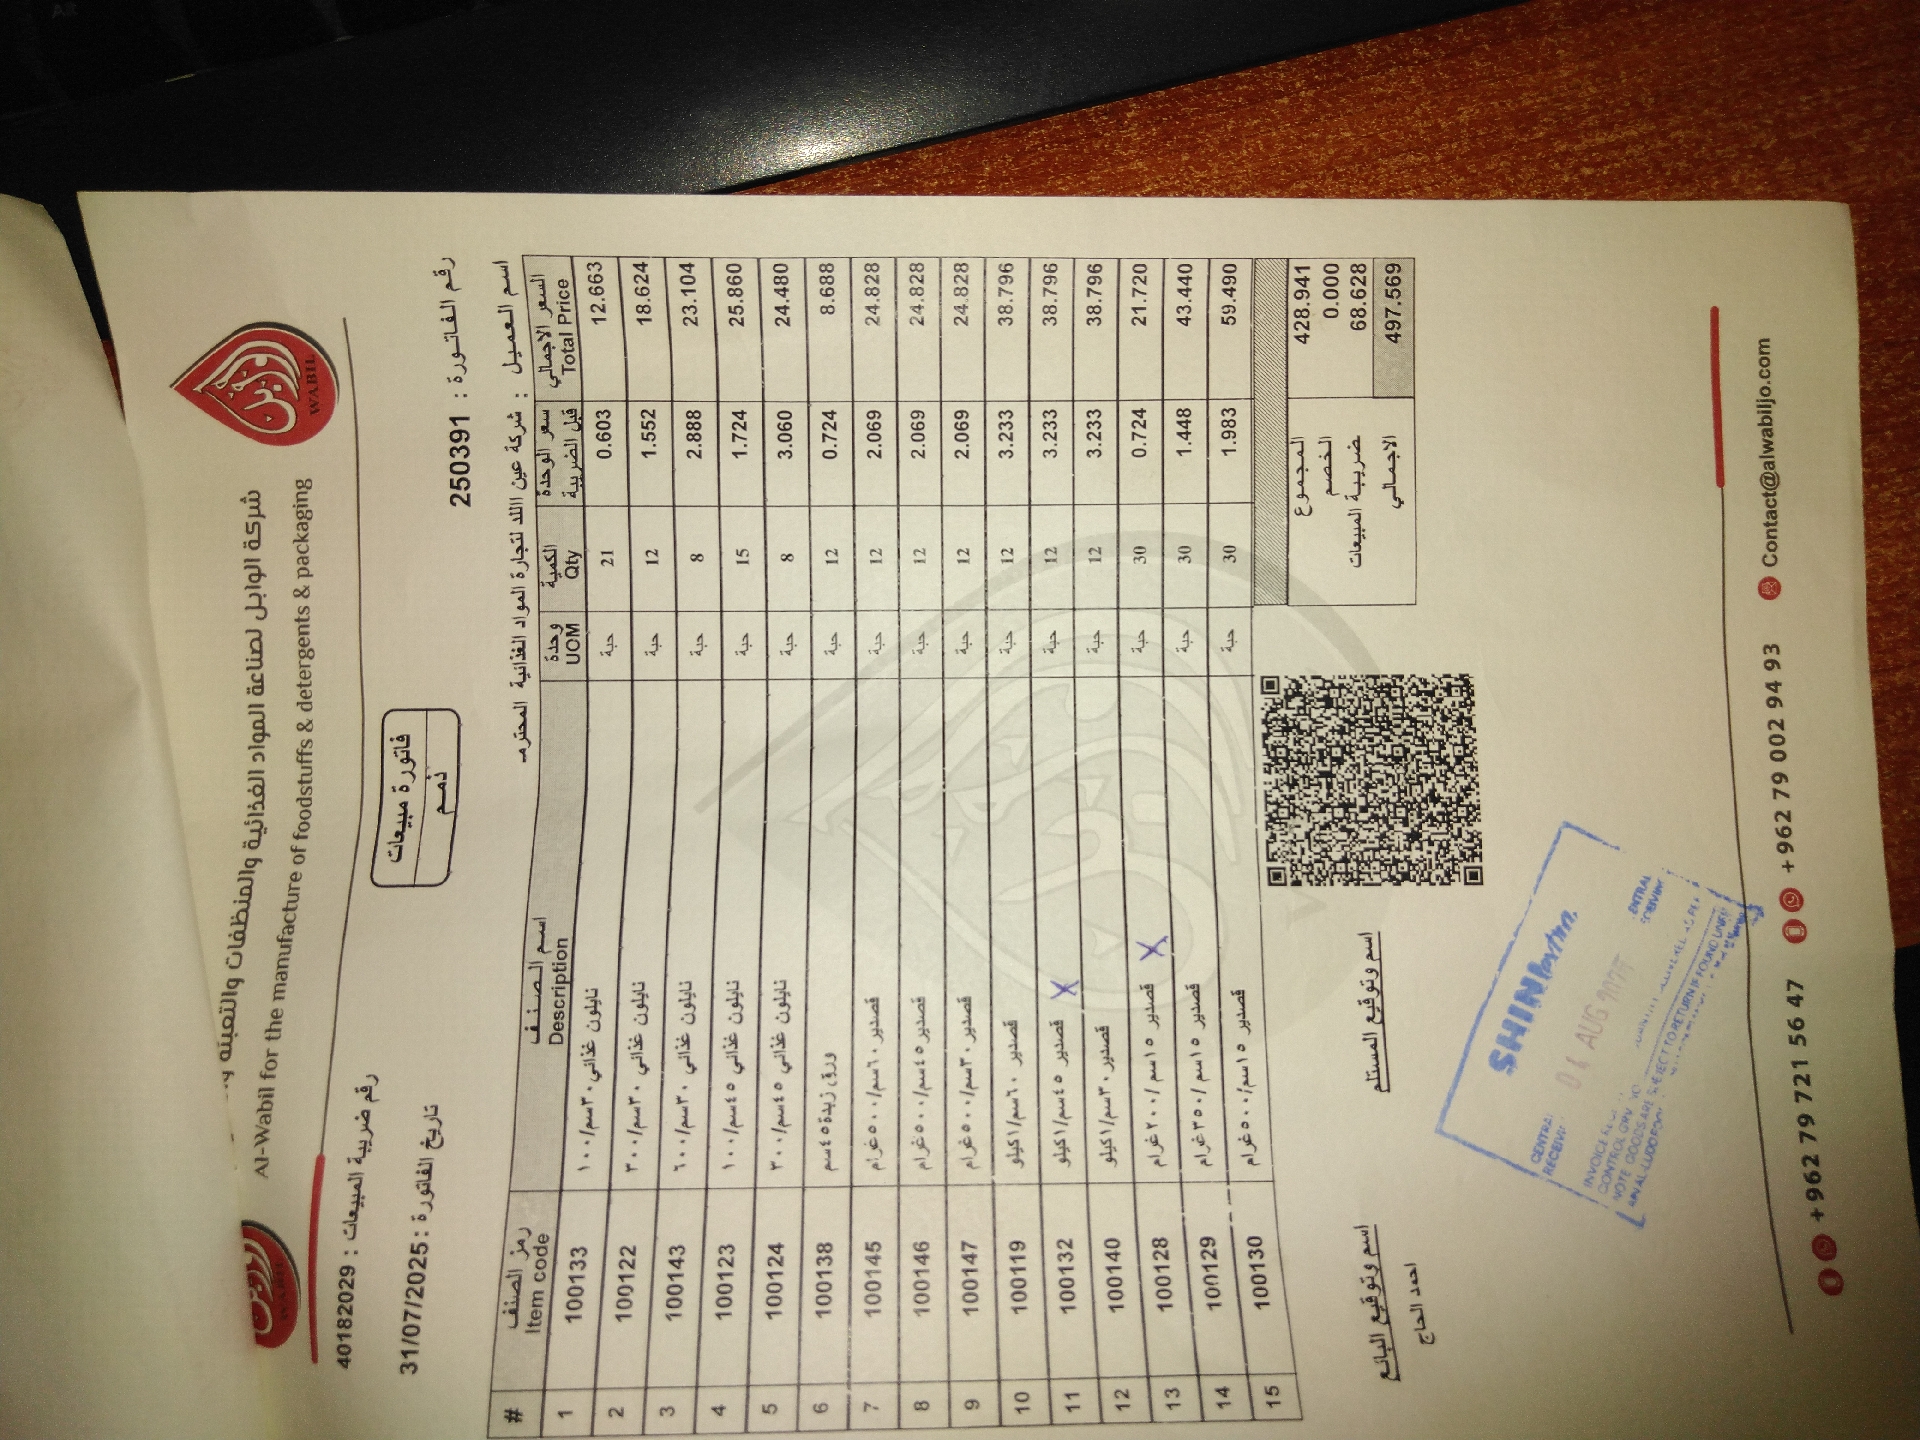 شركة الوابل لصناعة المواد الغذائية والمنظفات والتعبئة
Al-Wabil for the manufacture of foodstuffs & detergents & packaging
WABIL
رقم ضريبة المبيعات : 40182029
فاتورة مبيعات
ذمم
تاريخ الفاتورة : 31/07/2025
رقم الفاتورة : 250391
اسم العميل : شركة عين اللد لتجارة المواد الغذائية المحترمـ
# رمز الصنف اسم الصنف وحدة الكمية سعر الوحدة قبل الضريبة السعر الاجمالي
Item code Description UOM Qty Total Price
1 100133 نايلون غذائي ٣٠سم/١٠٠ حبة 21 0.603 12.663
2 100122 نايلون غذائي ٣٠سم/٣٠٠ حبة 12 1.552 18.624
3 100143 نايلون غذائي ٣٠سم/٦٠٠ حبة 8 2.888 23.104
4 100123 نايلون غذائي ٤٥سم/١٠٠ حبة 15 1.724 25.860
5 100124 نايلون غذائي ٤٥سم/٣٠٠ حبة 8 3.060 24.480
6 100138 ورق زبدة ٤٥سم حبة 12 0.724 8.688
7 100145 قصدير ٦٠سم/٥٠٠غرام حبة 12 2.069 24.828
8 100146 قصدير ٤٥سم/٥٠٠غرام حبة 12 2.069 24.828
9 100147 قصدير ٣٠سم/٥٠٠غرام حبة 12 2.069 24.828
10 100119 قصدير ٦٠سم/١كيلو حبة 12 3.233 38.796
11 100132 قصدير ٤٥سم/١كيلو X حبة 12 3.233 38.796
12 100140 قصدير ٣٠سم/١كيلو حبة 12 3.233 38.796
13 100128 قصدير ١٥سم/٢٠٠غرام X حبة 30 0.724 21.720
14 100129 قصدير ١٥سم/٣٥٠غرام حبة 30 1.448 43.440
15 100130 قصدير ١٥سم/٥٠٠غرام حبة 30 1.983 59.490
المجموع 428.941
الخصم 0.000
ضريبة المبيعات 68.628
الاجمالي 497.569
اسم وتوقيع البائع
اسم وتوقيع المستلم
احمد الحاج
AUG
NOTE GOODS ARE SUBJECT TO RETURN IF FOUND
+962 79 721 56 47
+962 79 002 94 93
Contact@alwabiljo.com